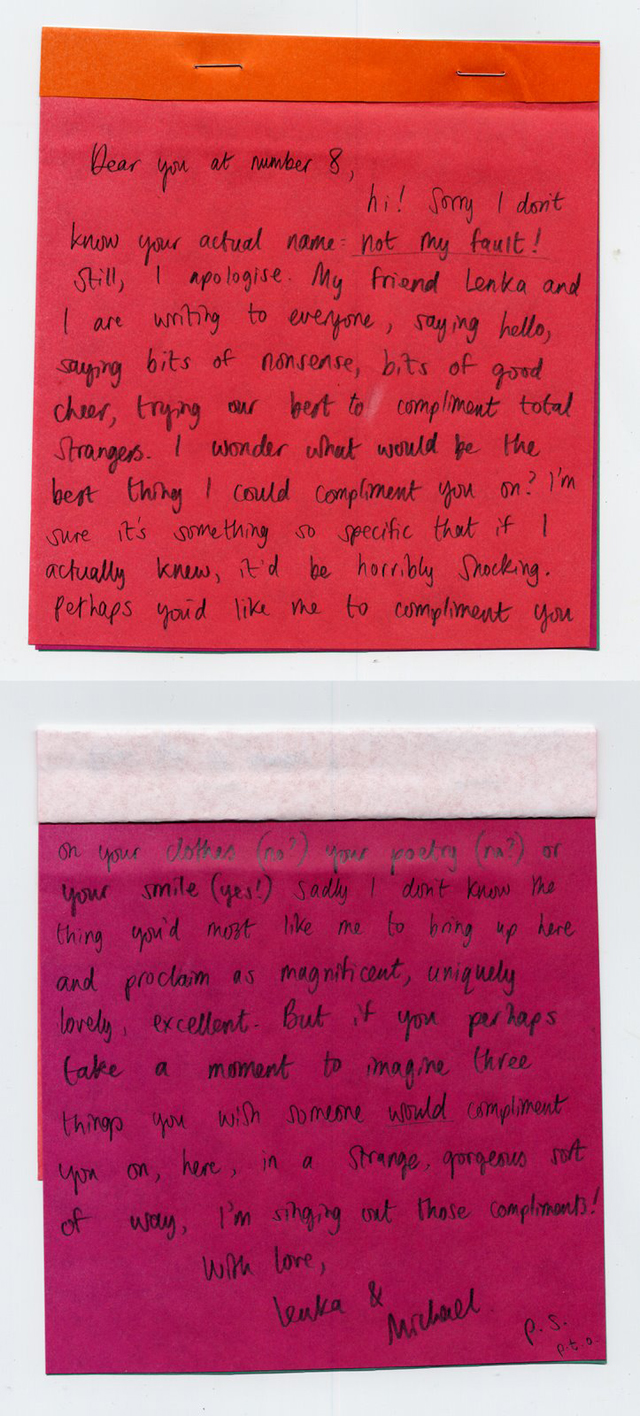 Dear you at number 8,
hi! Sorry I don't
know your actual name: not my fault!
Still, I apologise. My friend Lenka and
I are writing to everyone, saying hello,
saying bits of nonsense, bits of good
cheer, trying our best to compliment total
strangers. I wonder what would be the
best thing I could compliment you on? I'm
sure it's something so specific that if I
actually knew, it'd be horribly shocking.
Perhaps you'd like me to compliment you
on your clothes (no?) your poetry (no?) or
your smile (yes!) Sadly I don't know the
thing you'd most like me to bring up here
and proclaim as magnificent, uniquely
lovely, excellent. But if you perhaps
take a moment to imagine three
things you wish someone would compliment
you on, here, in a strange, gorgeous sort
of way, I'm singing out those compliments!
With love,
Lenka &
Michael.
P.S.
p.t.o.